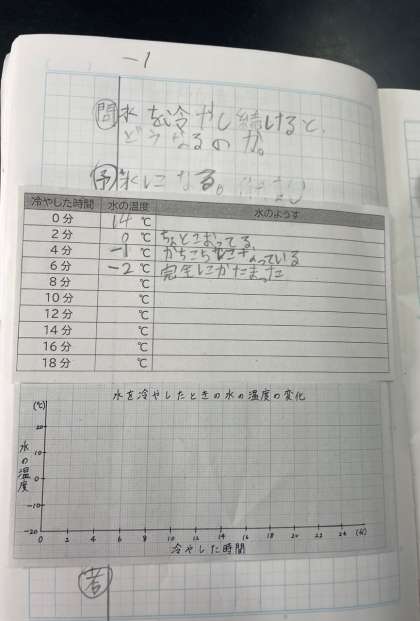 -1
問 水を冷やし続けると、
どうなるのか。
予 氷になる。
冷やした時間 水の温度 水のようす
0分 14 ℃
2分 0 ℃ ちょとこおってる。
4分 -1 ℃ かちこちにこおっている
6分 -2 ℃ 完全にかたまった
8分 ℃
10分 ℃
12分 ℃
14分 ℃
16分 ℃
18分 ℃
水を冷やしたときの水の温度の変化
(℃)
20
10
水の温度
0
-10
-20
0 2 4 6 8 10 12 14 16 18 20 22 24 (分)
冷やした時間
考